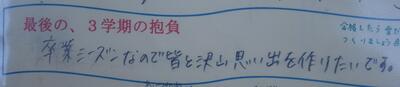 最後の、3学期の抱負
卒業シーズンなので皆と沢山思い出を作りたいです。